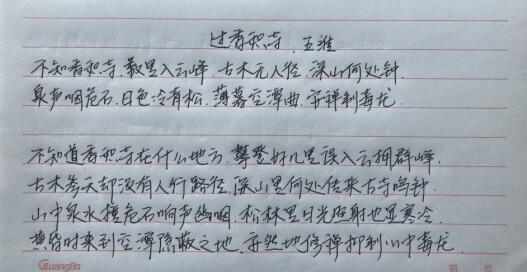 过香积寺. 王维
不知香积寺,数里入云峰,古木无人径,深山何处钟.
泉声咽危石,日色冷青松,薄暮空潭曲,安禅制毒龙.
不知道香积寺在什么地方,攀登好几里误入云拥群峰.
古木参天却没有人行路径,深山里何处传来古寺鸣钟.
山中泉水撞危石响声幽咽,松林里日光照射也显寒冷.
黄昏时来到空潭隐蔽之地,安然地修禅抑制心中毒龙.
GuangBo